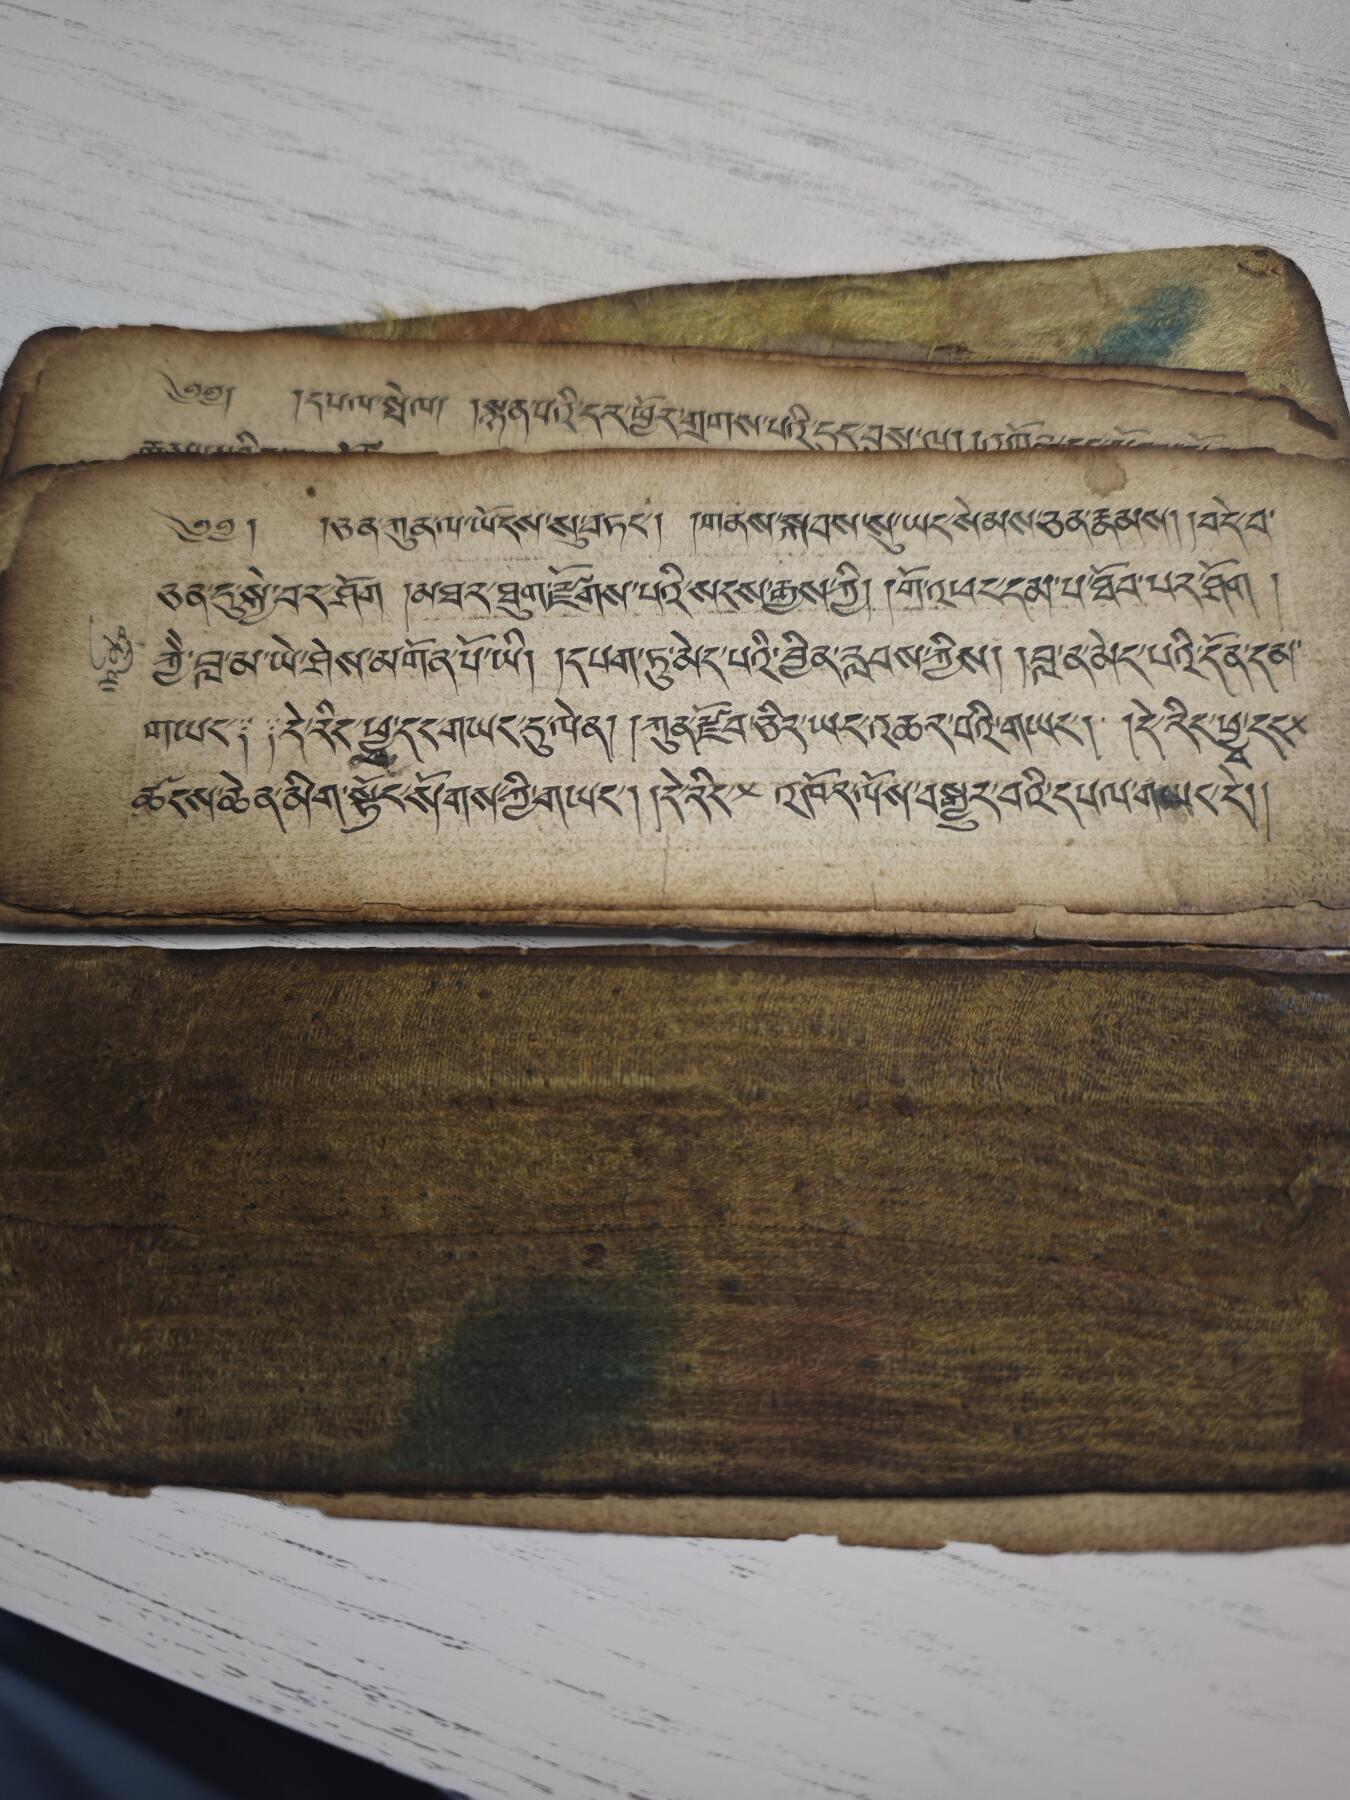 ༄༅། །དཔལ་སྤེལ། །སྙན་པའི་དར་ཕྱོར་གྲགས་པའི་དང་བླས་ལ།
༄༅། །ཅན་ཀུན་ལ་ཡོངས་སུ་བཏང་། །གནས་སྐབས་སུ་ཡང་སེམས་ཅན་རྣམས། །བདེ་བ་
ཅན་དུ་སྐྱེ་བར་ཤོག །མཐར་ཐུག་རྫོགས་པའི་སངས་རྒྱས་ཀྱི། །གོ་འཕང་དམ་པ་ཐོབ་པར་ཤོག །
ཀྱེ་བླ་མ་ཡེ་ཤེས་མགོན་པོ་ཡི། །དཔག་ཏུ་མེད་པའི་བྱིན་རླབས་ཀྱིས། །བླ་ན་མེད་པའི་དོན་དམ་
གཡང༌། །དེ་རིང་ཕྱྭ་དང་གཡང་དུ་ལེན། །ཀུན་རྫོབ་ཅིར་ཡང་འཆར་བའི་གཡང་། །དེ་རིང་ཕྱྭ་དང×
ཚངས་ཆེན་མིག་སྟོང་སོགས་ཀྱི་གཡང་། །དེ་རིང་× འཁོར་ལོས་བསྒྱུར་བའི་དཔལ་གཡང་དེ། །